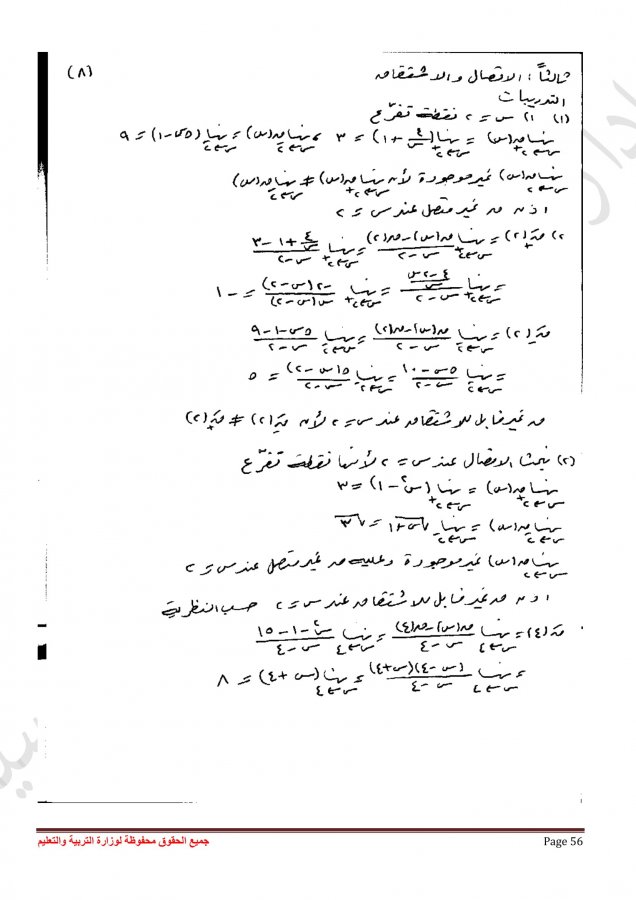 (٨)
ثالثاً : الاتصال والاشتقاق
التدريبات
(١) ١) س = ٢ نقطة تفرّع
نهـا ق(س) = نهـا (٤/س + ١) = ٣ ، نهـا ق(س) = نهـا (٥س - ١) = ٩
س←٢+ س←٢+ س←٢- س←٢-
نهـا ق(س) غير موجودة لأن نهـا ق(س) ≠ نهـا ق(س)
س←٢ س←٢+ س←٢-
اذن ق غير متصل عند س = ٢
٢) قَ+(٢) = نهـا (ق(س) - ق(٢))/(س - ٢) = نهـا (٤/س + ١ - ٣)/(س - ٢)
= نهـا ((٤ - ٢س)/س)/(س - ٢) = نهـا -٢(س - ٢)/س(س - ٢) = -١
قَ-(٢) = نهـا (ق(س) - ق(٢))/(س - ٢) = نهـا (٥س - ١ - ٩)/(س - ٢)
= نهـا (٥س - ١٠)/(س - ٢) = نهـا ٥(س - ٢)/(س - ٢) = ٥
ق غير قابل للاشتقاق عند س = ٢ لأن قَ-(٢) ≠ قَ+(٢)
(٢) نبحث الاتصال عند س = ٢ لأنها نقطة تفرّع
نهـا ق(س) = نهـا (س٢ - ١) = ٣
س←٢+ س←٢+
نهـا ق(س) = نهـا √(س + ١) = √٣
س←٢- س←٢-
نهـا ق(س) غير موجودة وعليه ق غير متصل عند س = ٢
س←٢
اذن ق غير قابل للاشتقاق عند س = ٢ حسب النظرية
قَ(٤) = نهـا (ق(س) - ق(٤))/(س - ٤) = نهـا (س٢ - ١ - ١٥)/(س - ٤)
= نهـا (س - ٤)(س + ٤)/(س - ٤) = نهـا (س + ٤) = ٨
س←٤ س←٤
جميع الحقوق محفوظة لوزارة التربية والتعليم
Page 56